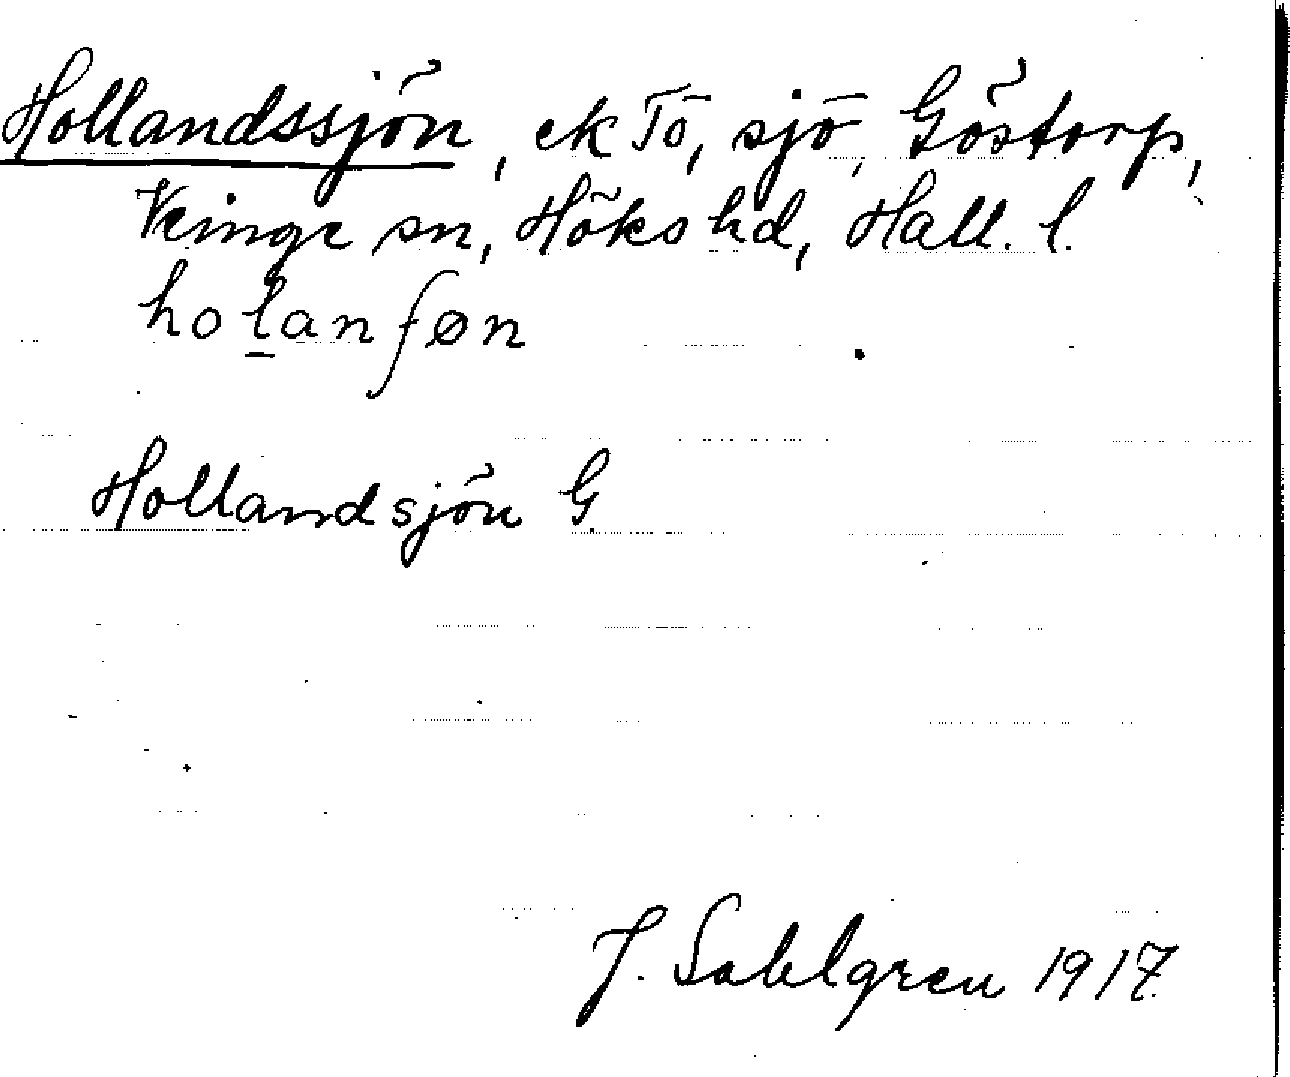 Hollandssjön, ek Tö, sjö, Göstorp,
Veinge sn, Höks hd, Hall. l.
holanʃøn
Hollandsjön G
J. Sahlgren 1917